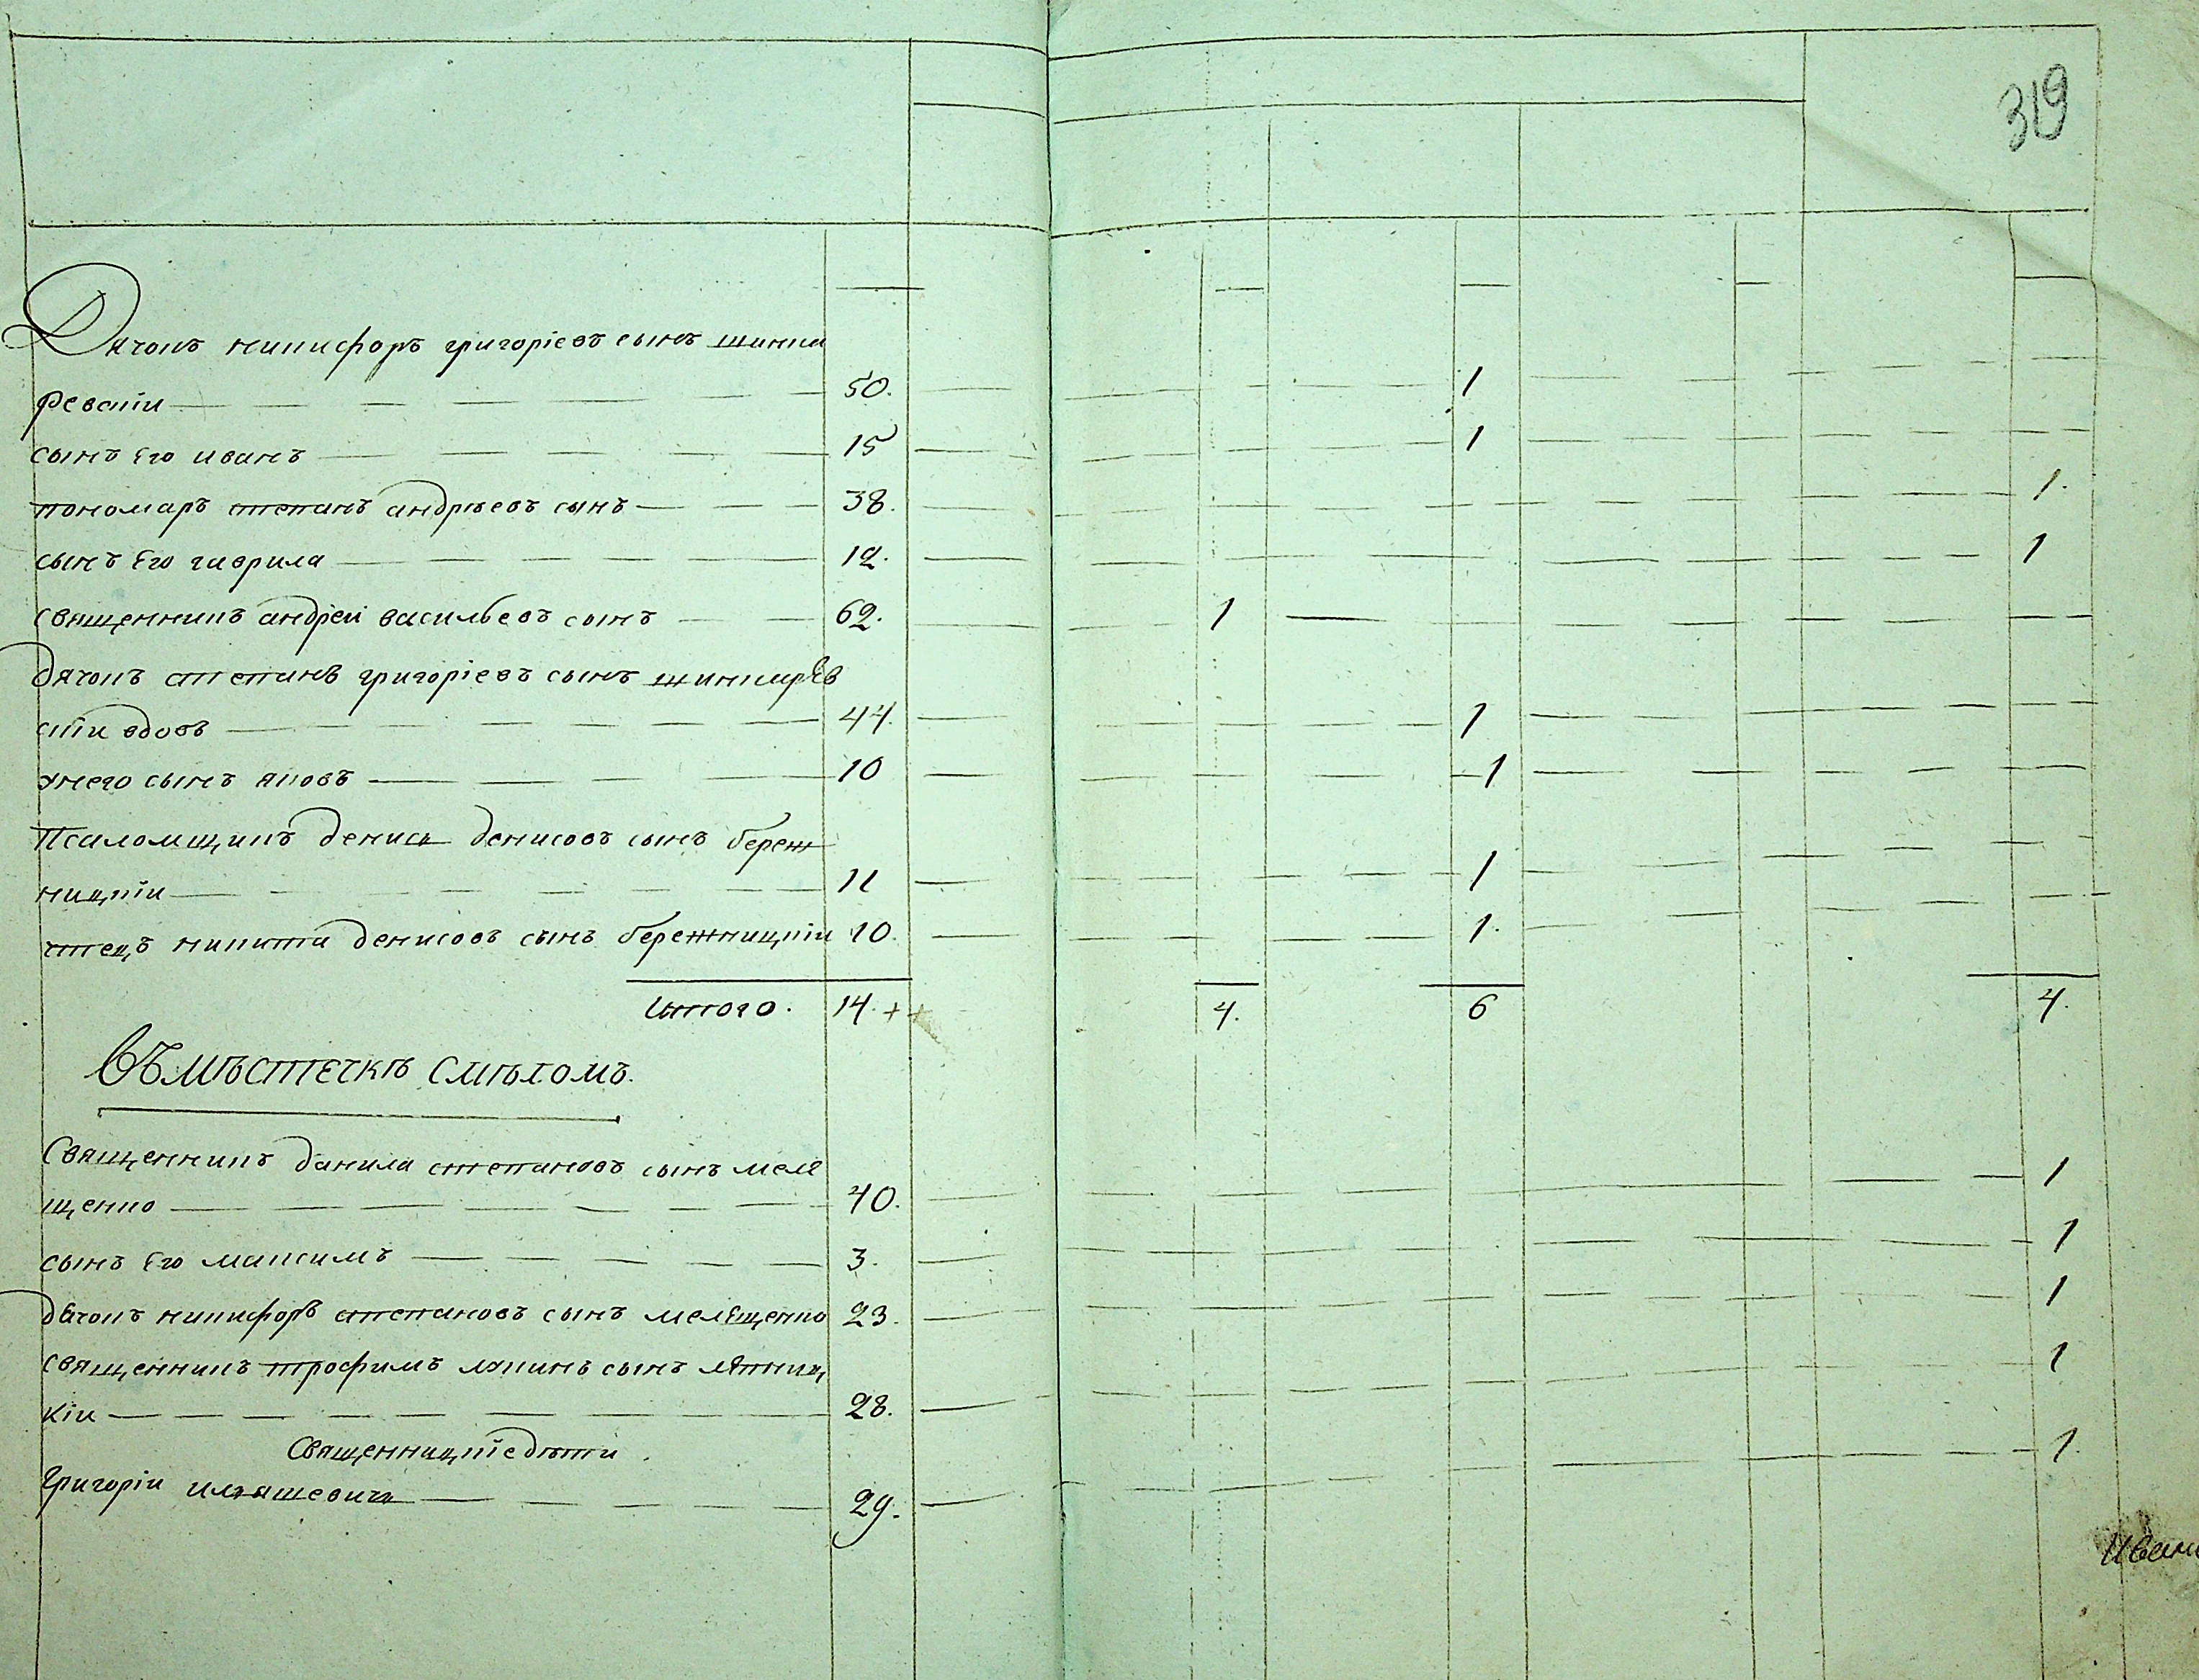 319
Дячокъ никифоръ григоріевъ сынъ шинка
ревскіи 50. 1
сынъ Его иванъ 15 1
пономаръ степанъ андрѣевъ сынъ 38. 1.
сынъ Его гаврила 12. 1
священникъ андреи васильевъ сынъ 62. 1
дячокъ степанъ григоріевъ сынъ шинкарев
скіи вдовъ 44. 1
унего сынъ яковъ 10 1
Псаломщикъ денисъ денисовъ сынъ береж
ницкіи 11 1
чтецъ никита денисовъ сынъ бережницкіи 10. 1.
Итого. 14. 4. 6 4.
Въместечкѣ смѣломъ.
Священникъ данила степановъ сынъ меле
щенко 40. 1
сынъ Его максимъ 3. 1
дячокъ никифоръ степановъ сынъ мелещенко 23. 1
священникъ трофимъ лукинъ сынъ
кіи 28. 1
Священницкіе дѣти.
Григоріи ильяшевичъ 29. 1.